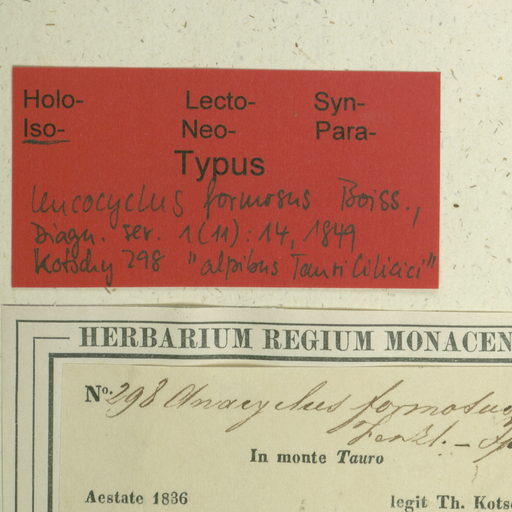 Holo- Lecto- Syn-
Iso- Neo- Para-
Typus
Leucocyclus formosus Boiss.,
Diagn. ser. 1(11): 14, 1849
Kotschy 298 "alpibus Tauri Cilicici"
HERBARIUM REGIUM MONACEN
No. 298 Anacyclus formosus
Fenzl. –
In monte Tauro
Aestate 1836 legit Th. Kots